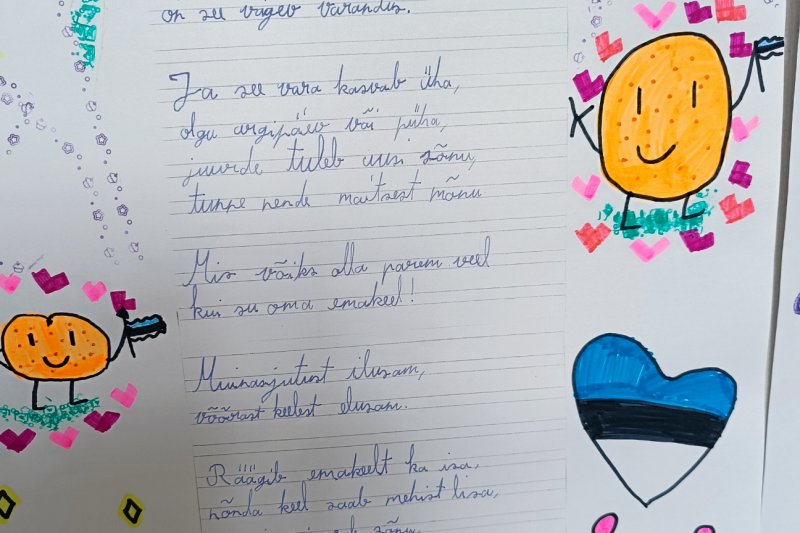 on see vägev varandus.
Ja see vara kasvab üha,
olgu argipäev või püha,
juurde tuleb uusi sõnu,
tunne nende maitsest mõnu
Mis võiks olla parem veel
kui su oma emakeel!
Muinasjutust ilusam,
võõrast keelest elusam.
Räägib emakeelt ka isa,
nõnda keel saab mehist lisa,
sõnu,